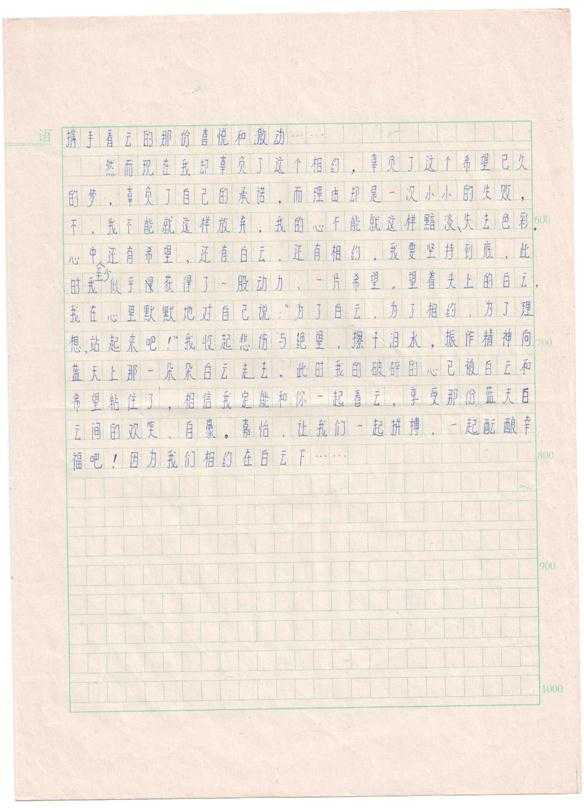 语
携手看云的那份喜悦和激动……
然而现在我却辜负了这个相约，辜负了这个希望已久
的梦，辜负了自己的承诺。而理由却是一次小小的失败。
不，我不能就这样放弃，我的心不能就这样黯淡、失去色彩。
600
心中还有希望，还有白云，还有相约。我要坚持到底，此
时我似乎慢获得了一股动力、一片希望。望着头上的白云，
我在心里默默地对自己说：“为了白云，为了相约，为了理
想，站起来吧！”我收起悲伤与绝望，擦干泪水，振作精神向
700
蓝天上那一朵朵白云走去。此时我的破碎的心已被白云和
希望粘住了，相信我定能和你一起看云，享受那份蓝天白
云间的欢笑、自豪。嘉怡，让我们一起拼搏，一起酝酿幸
福吧！因为我们相约在白云下……
800
900
1000